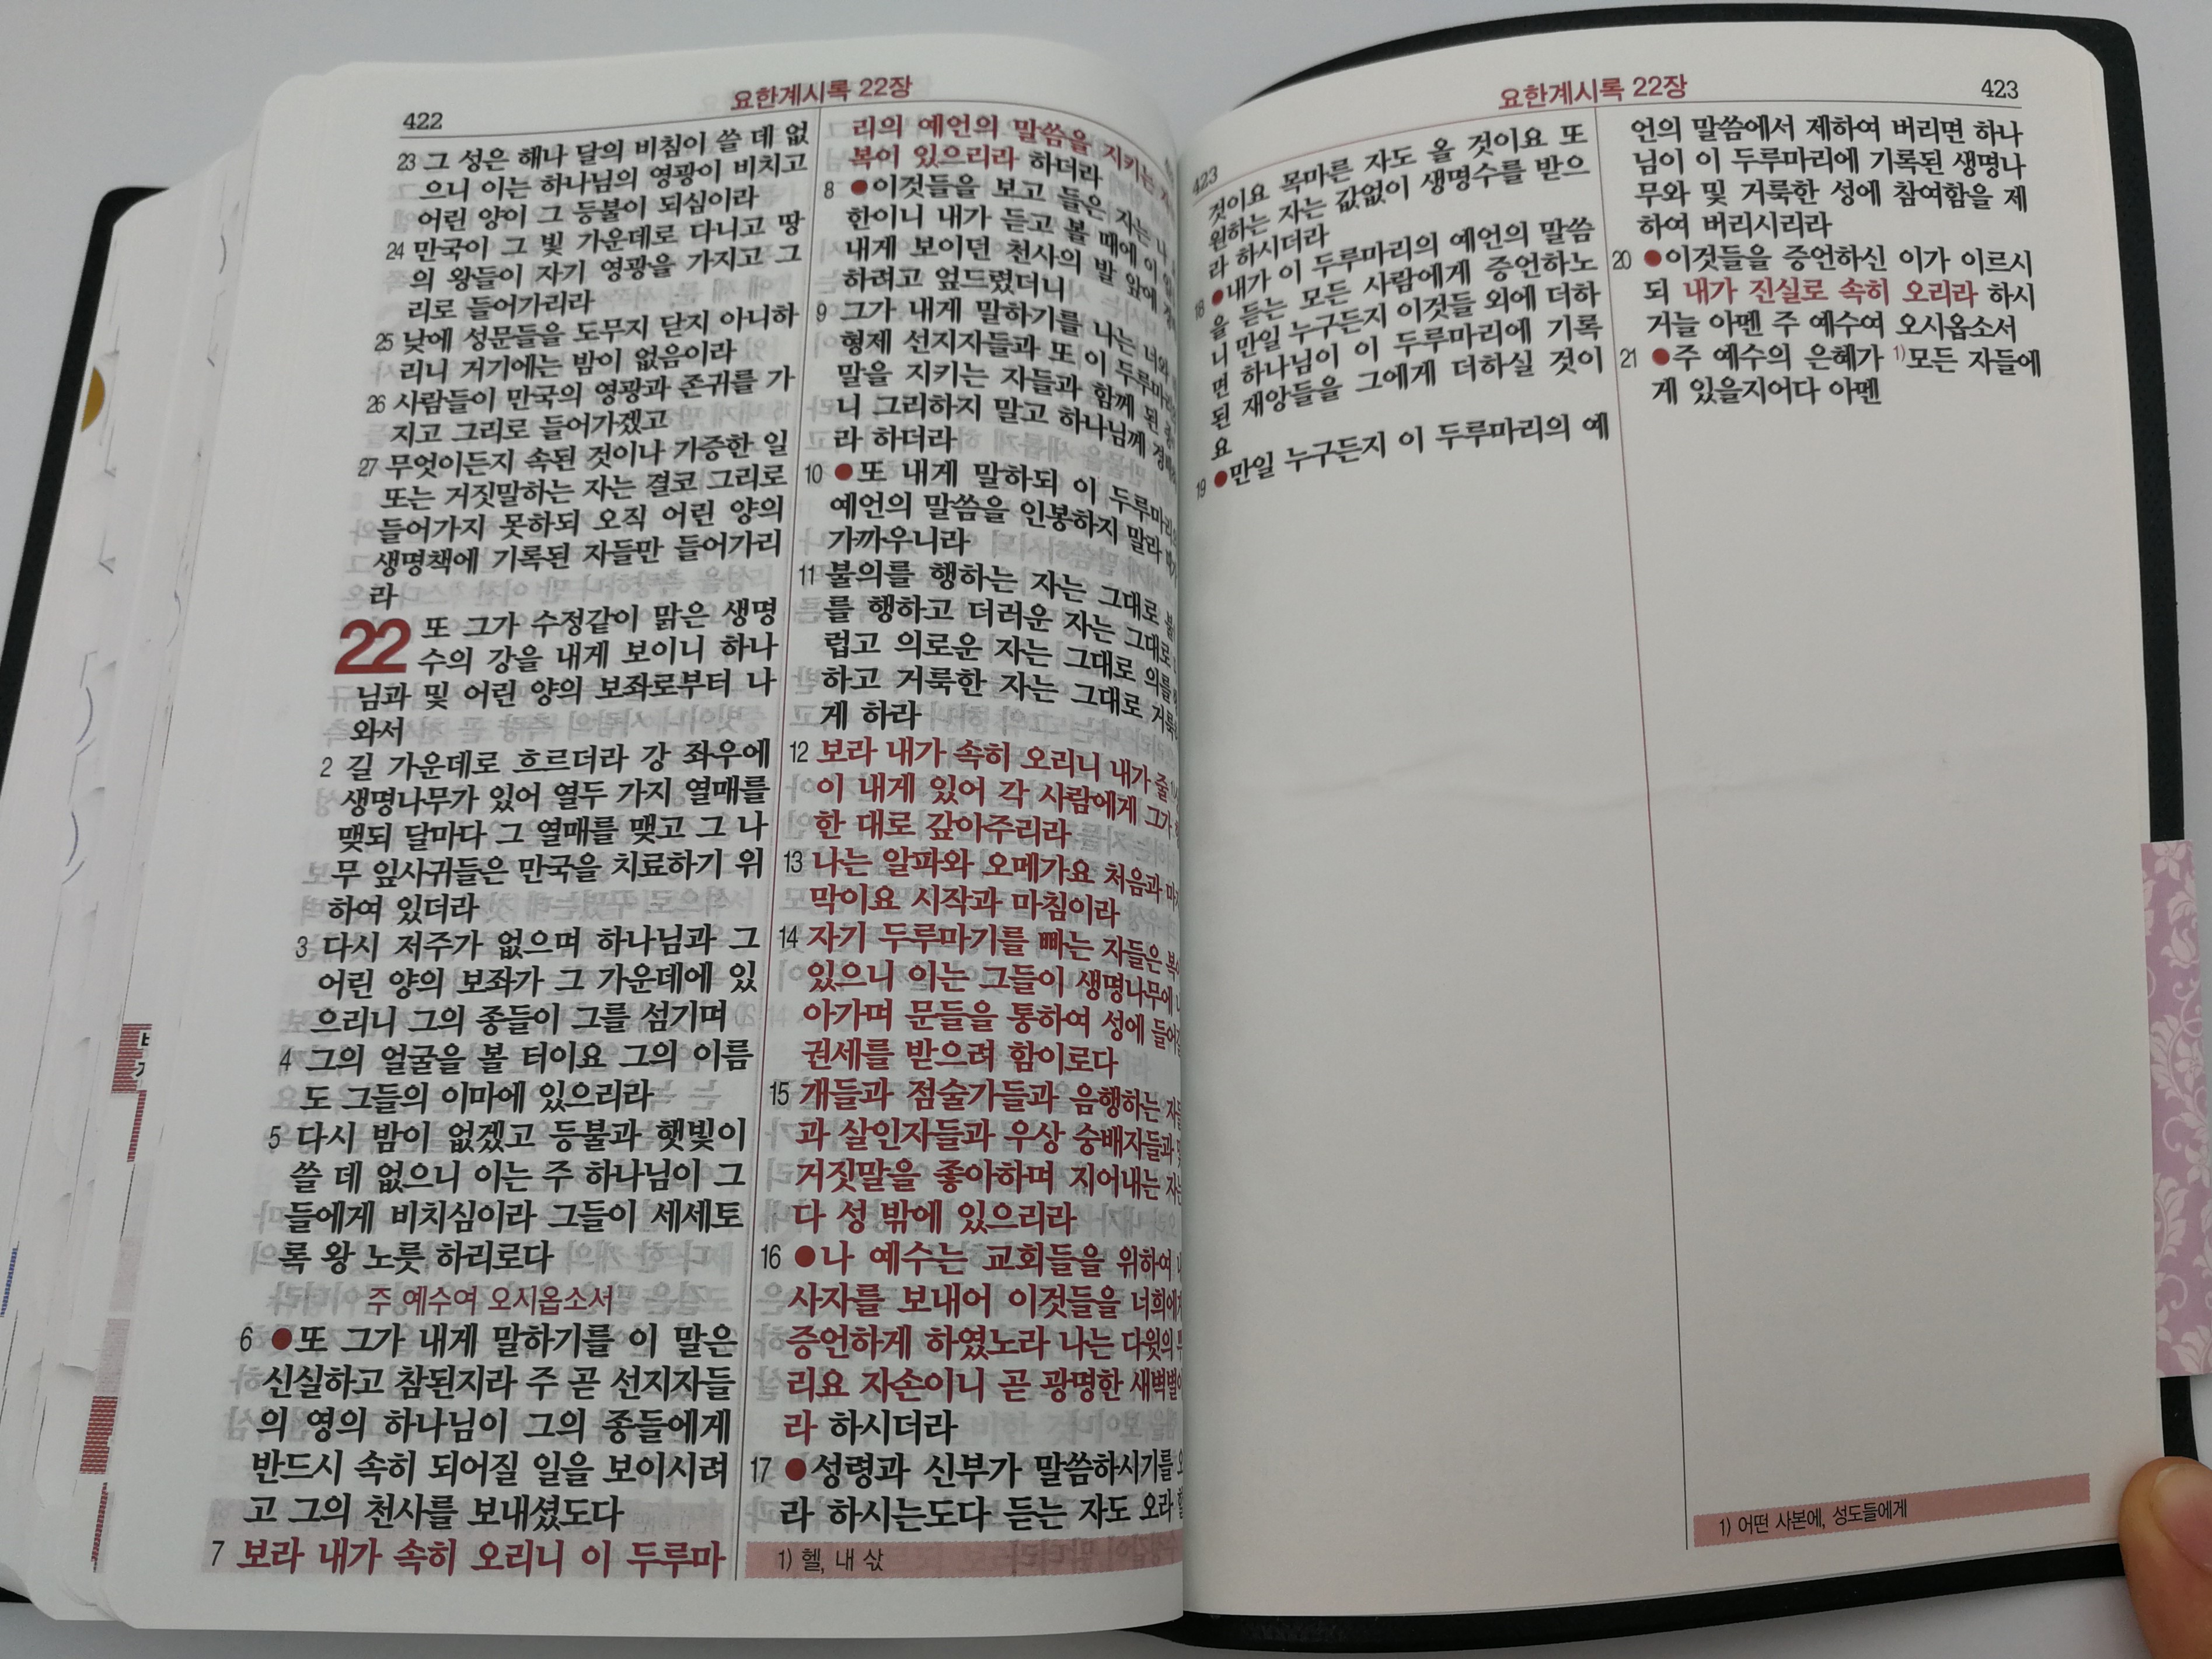 422
요한계시록 22장
23 그 성은 해나 달의 비침이 쓸 데 없
으니 이는 하나님의 영광이 비치고
어린 양이 그 등불이 되심이라
24 만국이 그 빛 가운데로 다니고 땅
의 왕들이 자기 영광을 가지고 그
리로 들어가리라
25 낮에 성문들을 도무지 닫지 아니하
리니 거기에는 밤이 없음이라
26 사람들이 만국의 영광과 존귀를 가
지고 그리로 들어가겠고
27 무엇이든지 속된 것이나 가증한 일
또는 거짓말하는 자는 결코 그리로
들어가지 못하되 오직 어린 양의
생명책에 기록된 자들만 들어가리
라
22 또 그가 수정같이 맑은 생명
수의 강을 내게 보이니 하나
님과 및 어린 양의 보좌로부터 나
와서
2 길 가운데로 흐르더라 강 좌우에
생명나무가 있어 열두 가지 열매를
맺되 달마다 그 열매를 맺고 그 나
무 잎사귀들은 만국을 치료하기 위
하여 있더라
3 다시 저주가 없으며 하나님과 그
어린 양의 보좌가 그 가운데에 있
으리니 그의 종들이 그를 섬기며
4 그의 얼굴을 볼 터이요 그의 이름
도 그들의 이마에 있으리라
5 다시 밤이 없겠고 등불과 햇빛이
쓸 데 없으니 이는 주 하나님이 그
들에게 비치심이라 그들이 세세토
록 왕 노릇 하리로다
주 예수여 오시옵소서
6 ●또 그가 내게 말하기를 이 말은
신실하고 참된지라 주 곧 선지자들
의 영의 하나님이 그의 종들에게
반드시 속히 되어질 일을 보이시려
고 그의 천사를 보내셨도다
7 보라 내가 속히 오리니 이 두루마
리의 예언의 말씀을 지키는
복이 있으리라 하더라
8 ●이것들을 보고 들은 자는 나
한이니 내가 듣고 볼 때에 이
내게 보이던 천사의 발 앞에
하려고 엎드렸더니
9 그가 내게 말하기를 나는 너와
형제 선지자들과 또 이 두루마리의
말을 지키는 자들과 함께 된
니 그리하지 말고 하나님께 경배하
라 하더라
10 ●또 내게 말하되 이 두루마리의
예언의 말씀을 인봉하지 말라 때가
가까우니라
11 불의를 행하는 자는 그대로
를 행하고 더러운 자는 그대로
럽고 의로운 자는 그대로 의를
하고 거룩한 자는 그대로 거룩하
게 하라
12 보라 내가 속히 오리니 내가 줄
이 내게 있어 각 사람에게 그가
한 대로 갚아주리라
13 나는 알파와 오메가요 처음과 마지
막이요 시작과 마침이라
14 자기 두루마기를 빠는 자들은 복이
있으니 이는 그들이 생명나무에
아가며 문들을 통하여 성에 들어갈
권세를 받으려 함이로다
15 개들과 점술가들과 음행하는 자들
과 살인자들과 우상 숭배자들과
거짓말을 좋아하며 지어내는 자는
다 성 밖에 있으리라
16 ●나 예수는 교회들을 위하여
사자를 보내어 이것들을 너희에게
증언하게 하였노라 나는 다윗의
리요 자손이니 곧 광명한 새벽별이
라 하시더라
17 ●성령과 신부가 말씀하시기를
라 하시는도다 듣는 자도 오라
1) 헬, 내 삯
요한계시록 22장
423
423
것이요 목마른 자도 올 것이요 또
원하는 자는 값없이 생명수를 받으
라 하시더라
18 ●내가 이 두루마리의 예언의 말씀
을 듣는 모든 사람에게 증언하노
니 만일 누구든지 이것들 외에 더하
면 하나님이 이 두루마리에 기록
된 재앙들을 그에게 더하실 것이
요
19 ●만일 누구든지 이 두루마리의 예
언의 말씀에서 제하여 버리면 하나
님이 이 두루마리에 기록된 생명나
무와 및 거룩한 성에 참여함을 제
하여 버리시리라
20 ●이것들을 증언하신 이가 이르시
되 내가 진실로 속히 오리라 하시
거늘 아멘 주 예수여 오시옵소서
21 ●주 예수의 은혜가 1)모든 자들에
게 있을지어다 아멘
1) 어떤 사본에, 성도들에게